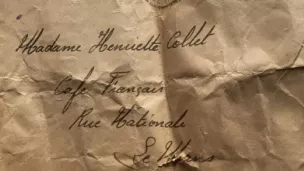 Madame Henriette Collet
Café Français
Rue Nationale
Le Mans